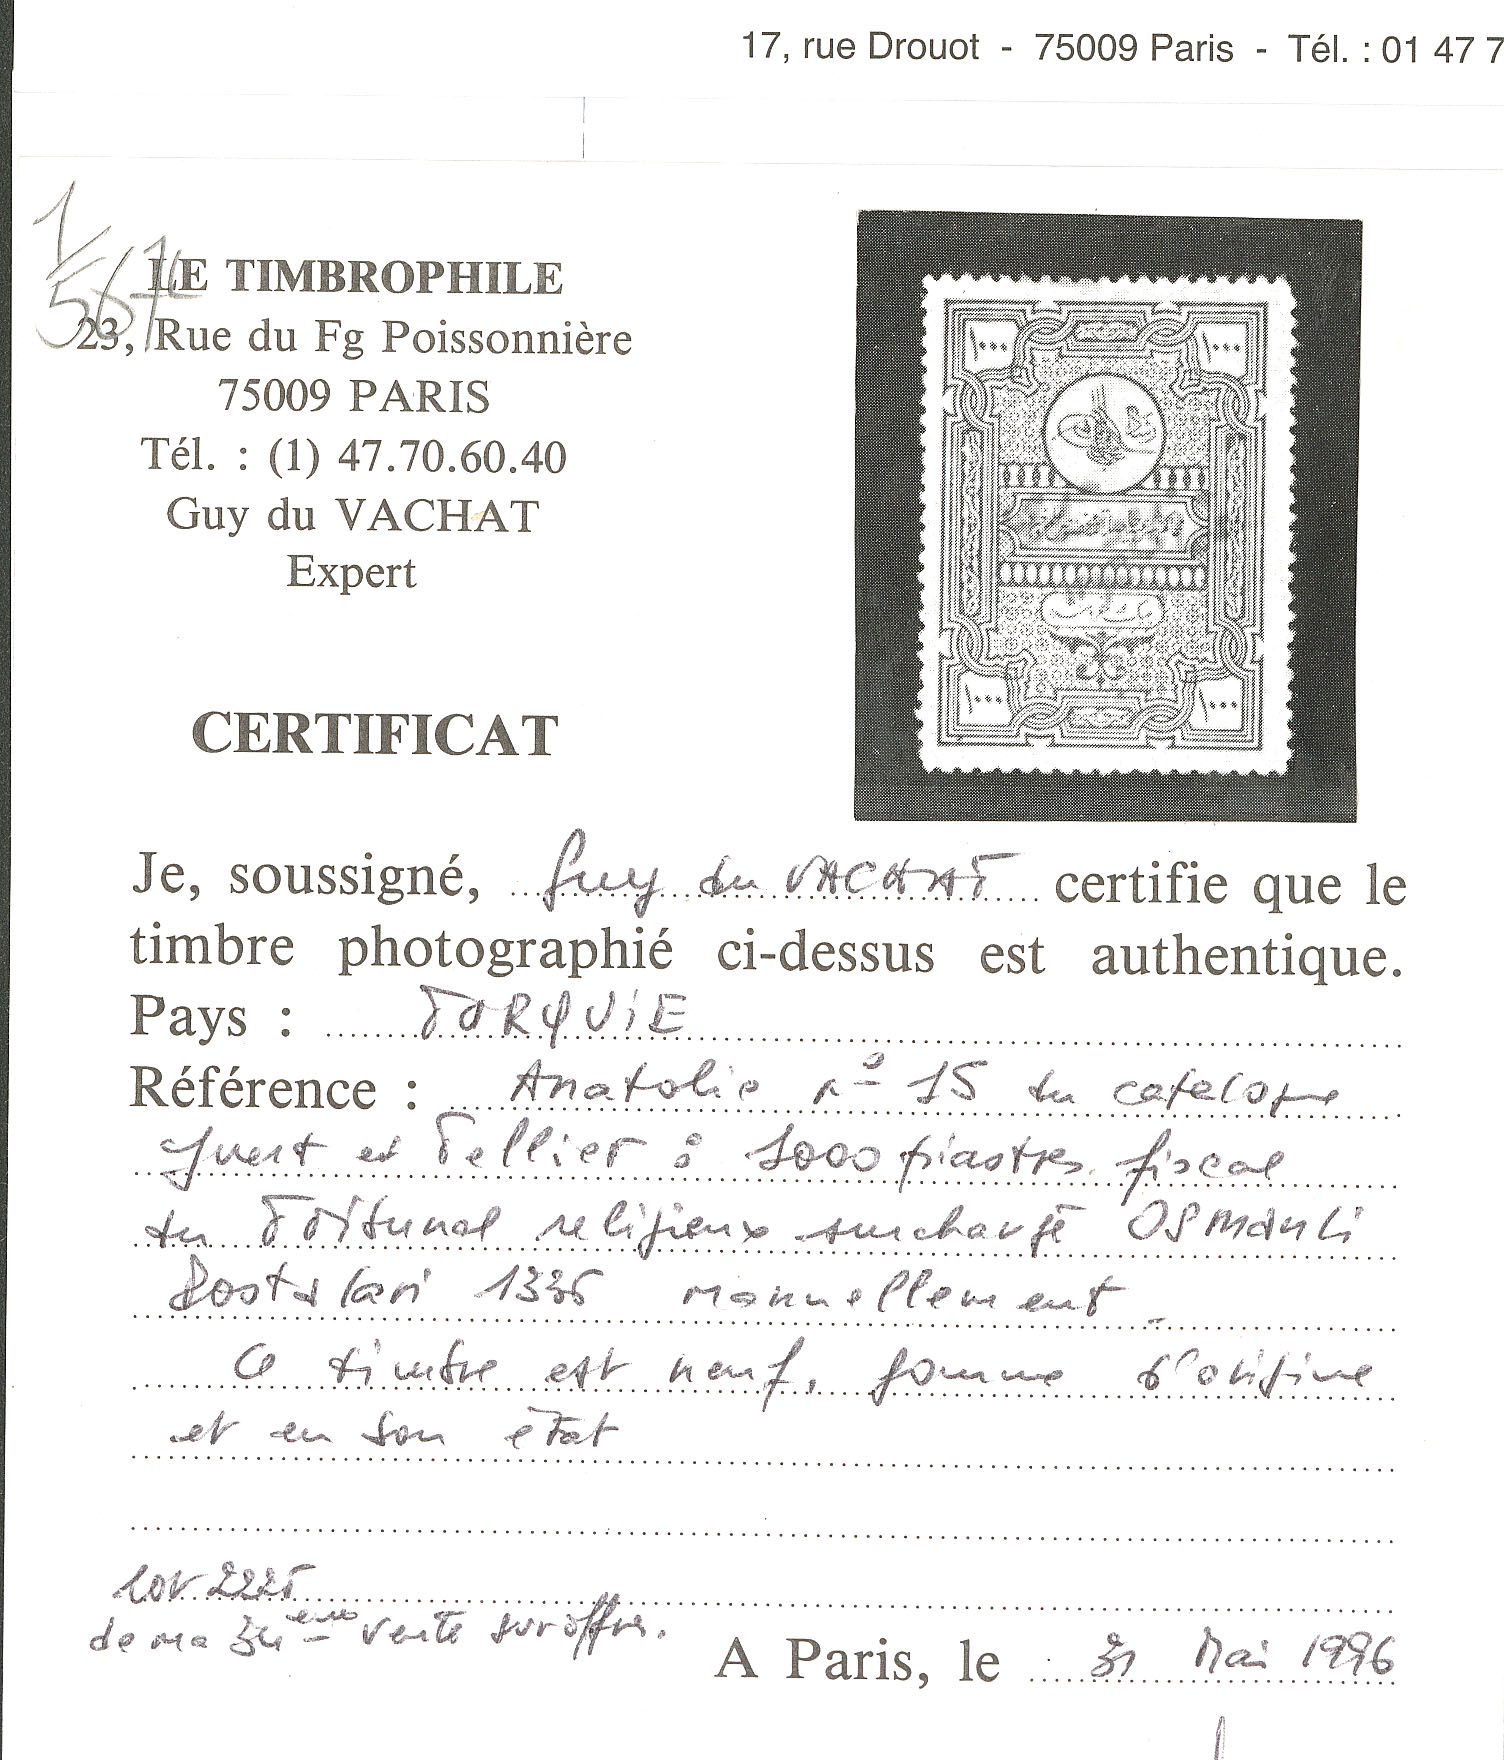 17, rue Drouot - 75009 Paris - Tél. : 01 47 7
LE TIMBROPHILE
23, Rue du Fg Poissonnière
75009 PARIS
Tél. : (1) 47.70.60.40
Guy du VACHAT
Expert
CERTIFICAT
Je, soussigné, Guy du VACHAT certifie que le
timbre photographié ci-dessus est authentique.
Pays : TURQUIE
Référence : Anatolie n° 15 du catalogue
Yvert et Tellier : 1000 piastres fiscal
du Tribunal religieux surchargé OSManli
Postalari 1336 manuellement
Ce timbre est neuf, gomme d'origine
et en son état
lot 2225
de ma vente sur offres.
A Paris, le 31 Mai 1996